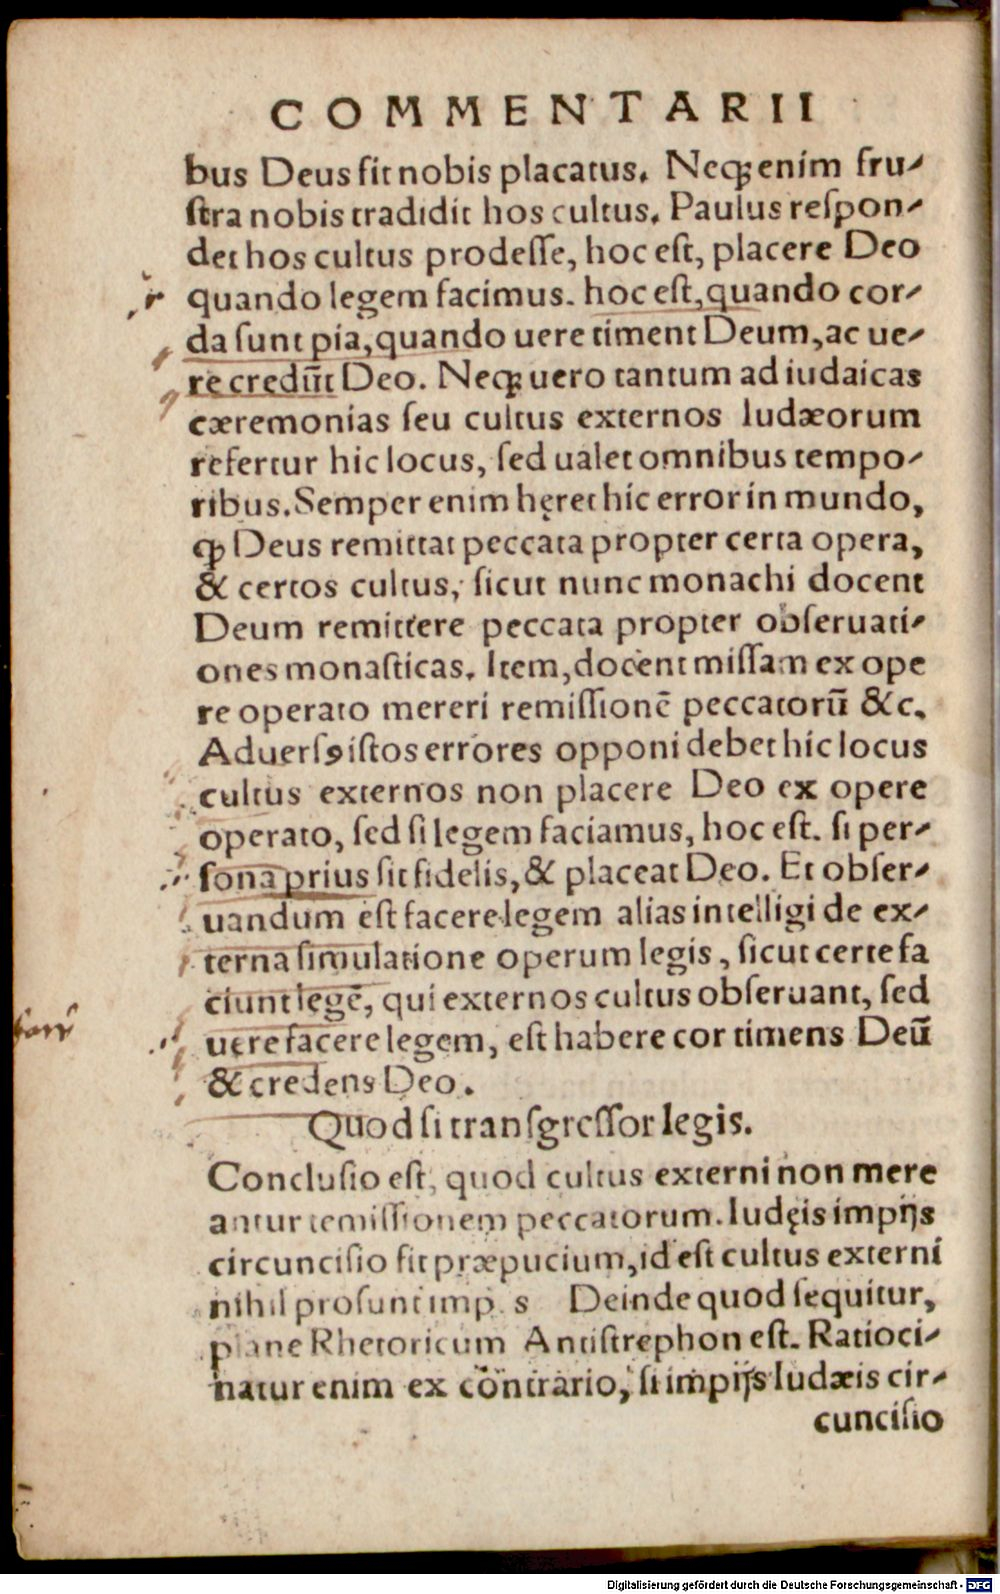 COMMENTARII
bus Deus sit nobis placatus. Neqꝫ enim fru-
ſtra nobis tradidit hos cultus. Paulus reſpon-
det hos cultus prodeſſe, hoc eſt, placere Deo
quando legem facimus. hoc eſt, quando cor-
da ſunt pia, quando uere timent Deum, ac ue-
re credūt Deo. Neqꝫ uero tantum ad iudaicas
cæremonias ſeu cultus externos Iudæorum
refertur hic locus, ſed ualet omnibus tempo-
ribus. Semper enim hęret hic error in mundo,
ꝙ Deus remittat peccata propter certa opera,
& certos cultus, ſicut nunc monachi docent
Deum remittere peccata propter obſeruati-
ones monaſticas. Item, docent miſſam ex ope
re operato mereri remiſſionē peccatorū &c.
Aduerſꝰ iſtos errores opponi debet hic locus
cultus externos non placere Deo ex opere
operato, ſed ſi legem faciamus, hoc eſt. ſi per-
ſona prius ſit fidelis, & placeat Deo. Et obſer-
uandum eſt facere legem alias intelligi de ex-
terna ſimulatione operum legis, ſicut certe fa
ciunt legē, qui externos cultus obſeruant, ſed
uere facere legem, eſt habere cor timens Deū
& credens Deo.
Quod ſi tranſgreſſor legis.
Concluſio eſt, quod cultus externi non mere
antur remiſſionem peccatorum. Iudęis impijs
circunciſio fit præpucium, id eſt cultus externi
nihil proſunt imp s Deinde quod ſequitur,
plane Rhetoricum Antiſtrephon eſt. Ratioci-
natur enim ex contrario, ſi impijs Iudæis cir-
cunciſio
Digitalisierung gefördert durch die Deutsche Forschungsgemeinschaft - DFG